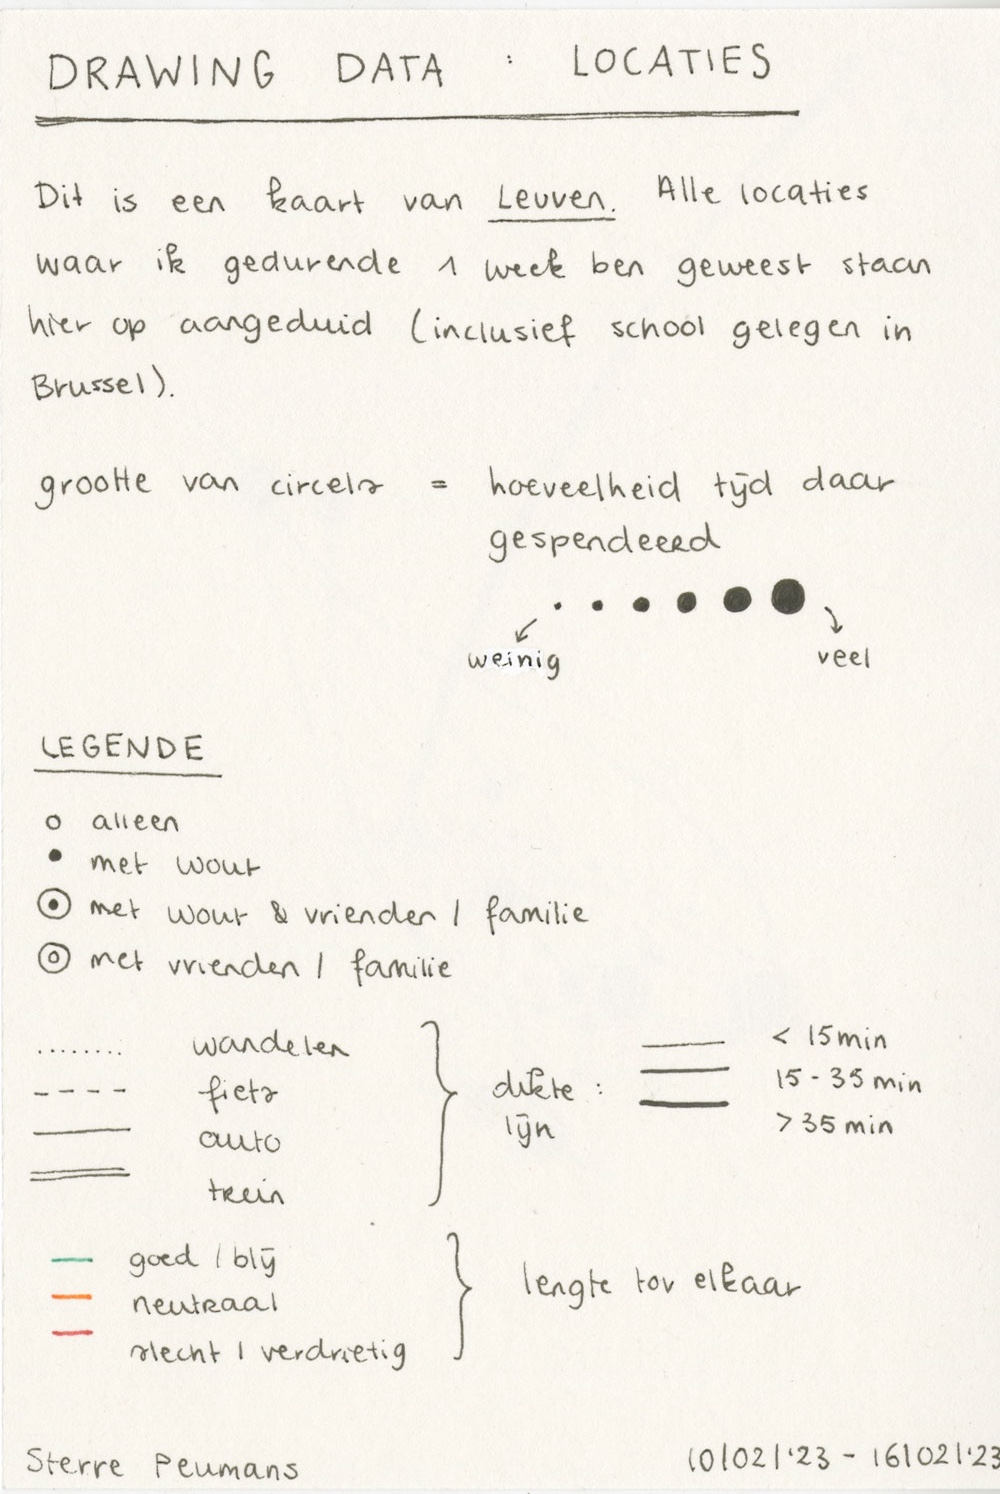 DRAWING DATA : LOCATIES
Dit is een kaart van Leuven. Alle locaties
waar ik gedurende 1 week ben geweest staan
hier op aangeduid (inclusief school gelegen in
Brussel).
grootte van circels = hoeveelheid tijd daar
gespendeerd
weinig veel
LEGENDE
alleen
met wout
met wout & vrienden / familie
met vrienden / familie
wandelen
fiets
auto
trein
dikte :
lijn
< 15min
15 - 35 min
> 35 min
goed / blij
neutraal
slecht / verdrietig
lengte tov elkaar
Sterre Peumans
10/02/'23 - 16/02/'23